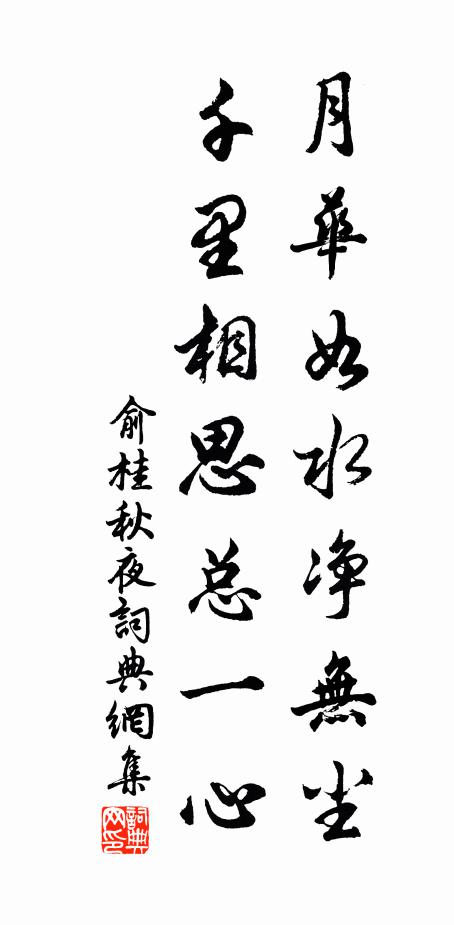 月華如水净無塵
千里相思总一心
俞桂秋夜詞典網集
詞典网印